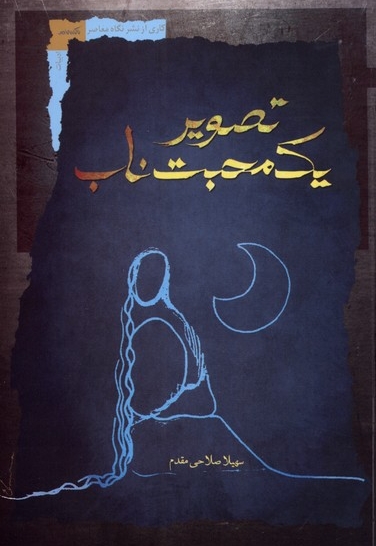 کاری از نشر نگاه معاصر
تصویر
یک محبت ناب
سهیلا صلاحی مقدم